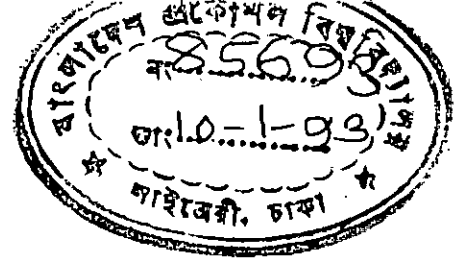 বাংলাদেশ প্রকৌশল বিশ্ববিদ্যালয়
নং 85693
তাং 10-1-93
লাইব্রেরী, ঢাকা